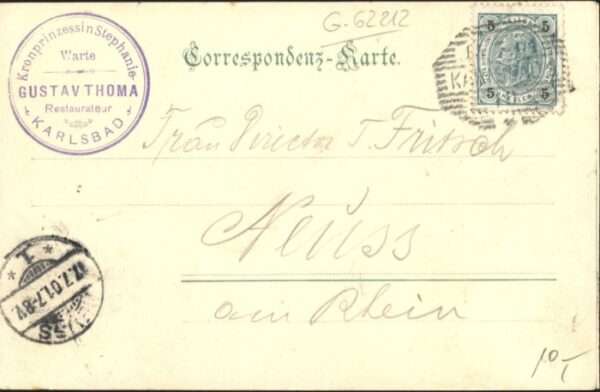 G-62212
Kronprinzessin Stephanie-
Warte
GUSTAV THOMA
Restaurateur
KARLSBAD
Correspondenz-Karte.
5 5
5 5
Frau Director T. Fritsch
Neuss
am Rhein
* 1 *
7.7.01.7-8V.
10,-